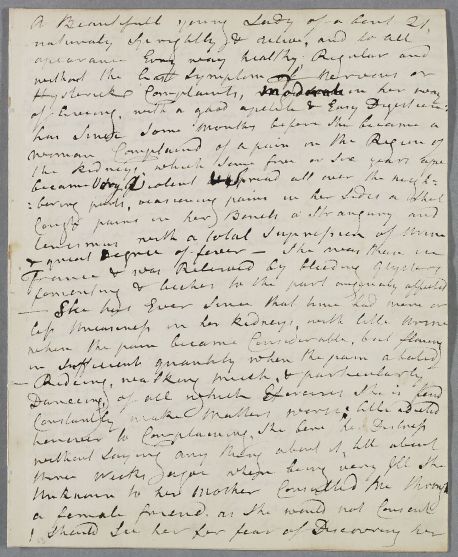 A Beautifull young Lady of about 21,
naturaly sprightly & active, and to all
apearance Every way healthy, Regular and
without the least Symptom of Nervous or
Hysterick Complaints, Moderate in her way
of Liveing, with a good apetite & Easy Digestion:
has since some months before she became a
woman Complained of a pain in the Region of
the Kidneys, which some four or six years ago
became Very Violent & Spread all over the neigh-
:bouring parts, occasioning pains in her sides a short
Cough pains in her Bowels a Strangury and
Tenesmus with a total Supression of Urine
& great Degree of fever — She was then in
France & was Relieved by bleeding Glysters
fomenting & leeches to the part originaly affected
— She has Ever since that time had more or
less Uneasiness in her Kidneys, with little Urine
when the pain became Considerable, but flowing
in Sufficient quantity when the pain abated
— Rideing, walking much, & particularly
Danceing, of all which Exercises She is fond
Constantly make matters worse: little adicted
however to Complaining, She bore her Distress
without saying any thing about it, till about
three weeks agoe when being very Ill She
Unknown to her Mother Consulted me through
a female friend, as She would not Consent
I Should See her for fear of Discovering her